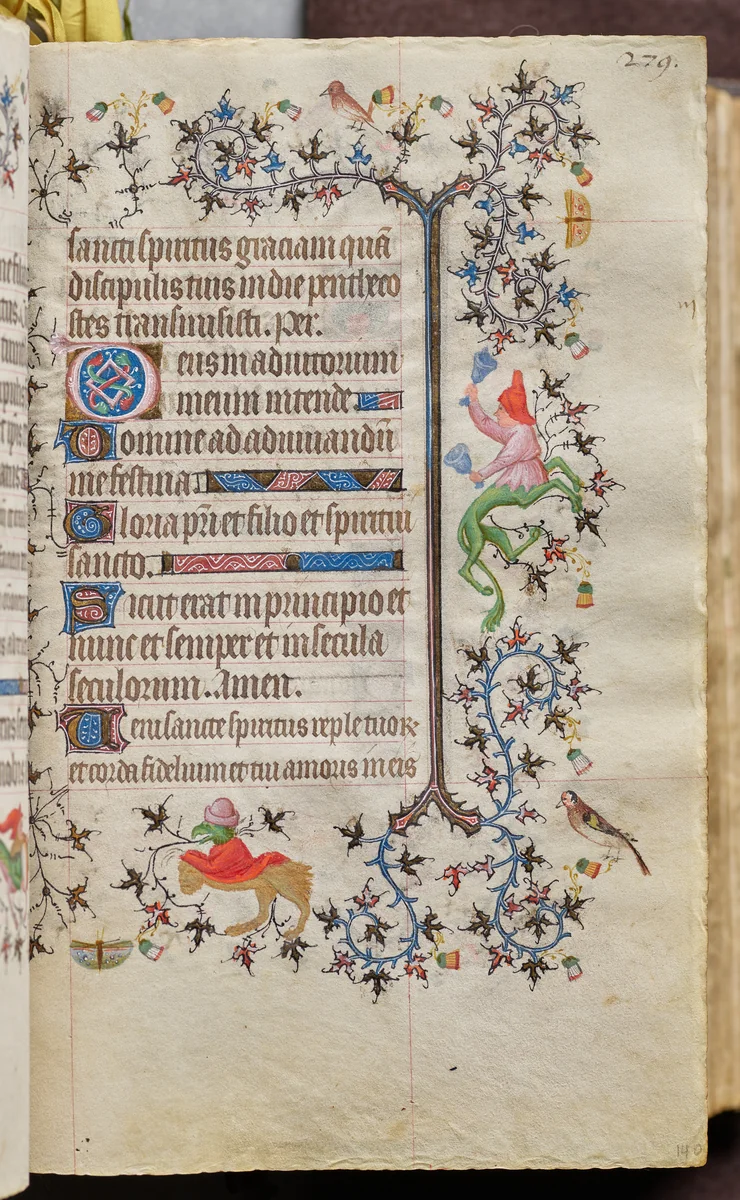 279.
sancti spiritus graciam quā
discipulis tuis in die pentheco
stes transmisisti. Per.
Deus in adiutorium
meum intende
Domine ad adiuuandū
me festina.
Gloria pr̄i et filio et spiritui
sancto.
Sicut erat in principio et
nunc et semper et in secula
seculorum. Amen.
Ueni sancte spiritus reple tuoꝝ
et corda fidelium et tui amoris in eis
140